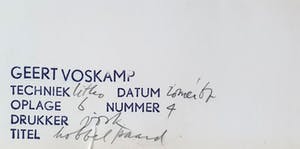 GEERT VOSKAMP
TECHNIEK litho DATUM zomer 67
OPLAGE 6 NUMMER 4
DRUKKER
TITEL hobbelpaard